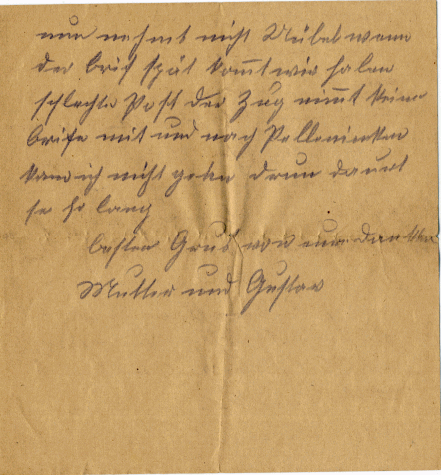 nun nehmt nicht Übel wenn
der brif spät kommt wir haben
schlechte Post der Zug nimt keine
brife mit und nach Pelleninken
kan ich nicht gehn drum dauert
se so lang
besten Gruß von eure
Mutter und Gustav